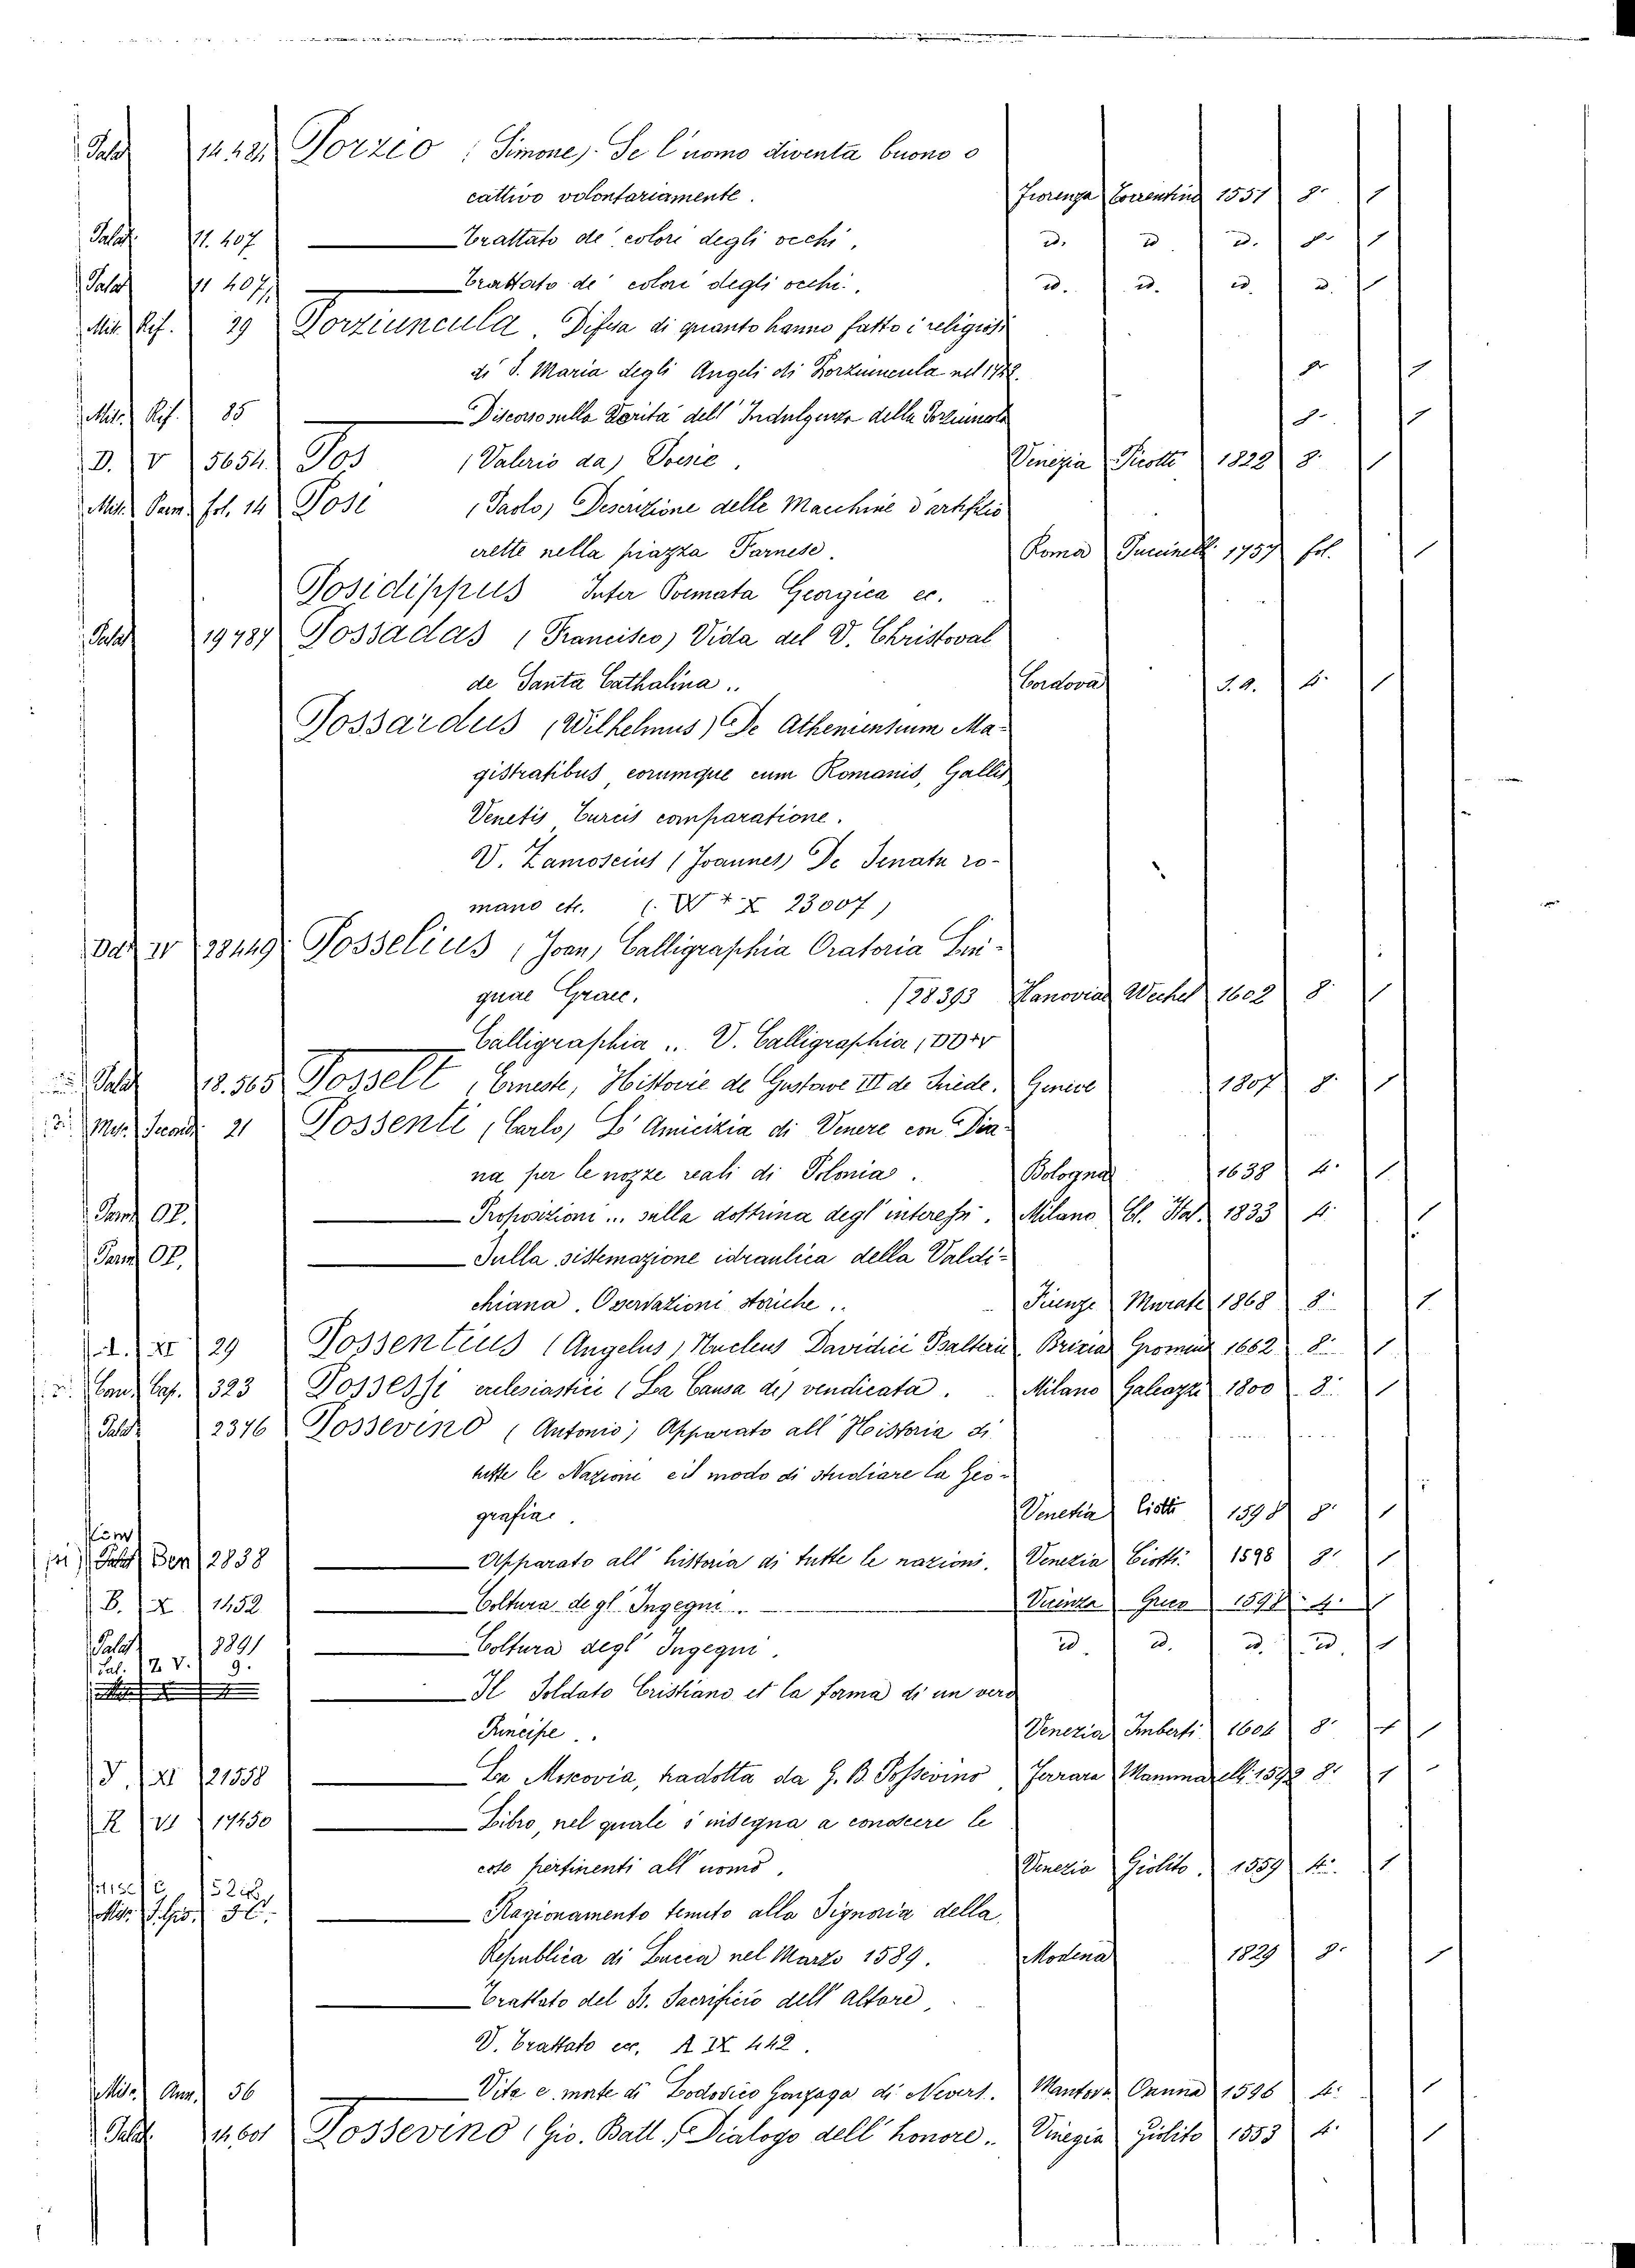 Palat 14.421. Porzio (Simone) Se l'uomo diventa buono o
cattivo volontariamente. Fiorenza Torrentino 1551 8. 1
Palat. 11.407 Trattato de' colori degli occhi. d. d. d. 8. 1
Palat 11 407 Trattato de' colori degli occhi. d. d. d. d. 1
Mis. Rif. 29 Porziuncula. Difesa di quanto hanno fatto i religiosi
di S. Maria degli Angeli di Porziuncula nel 8. 1
Mis. Rif. 85 Discorso sulla Verità dell' Indulgenza della Porziuncola 8. 1
D. V 5654. Pos (Valerio da) Poesie. Venezia Picotti 1822 8. 1
Mis. Parm. fol. 14 Posi (Paolo) Descrizione delle Macchine d'artificio
erette nella piazza Farnese. Roma Puccinelli 1757 fol. 1
Posidippus Inter Poemata Georgica ec.
Palat 19787 Possadas (Francisco) Vida del V. Christoval
de Santa Cathalina.. Cordova S.a. 4. 1
Possardus (Wilhelmus) De Atheniensium Ma-
gistratibus, eorumque cum Romanis, Gallis
Venetis, Turcis comparatione.
V. Zamoscius (Joannes) De Senatu ro-
mano etc. (W + X 23007)
IV 28449 Posselius (Joan) Calligraphia Oratoria Lin-
guae Graec. /28393 Hanoviae Wechel 1602 8. 1
Calligraphia .. V. Calligraphia,
Palat 18.565 Posselt (Erneste) Histoire de Gustave III de Suède. Geneve 1807 8. 1
Mis. Second. 21 Possenti (Carlo) L'Amicizia di Venere con Dia-
na per le nozze reali di Polonia. Bologna 1638 4. 1
Parm OP. Proposizioni ... sulla dottrina degl'interessi. Milano Cl. Ital. 1833 4. 1
Parm OP. Sulla sistemazione idraulica della Valdi-
chiana. Osservazioni storiche.. Firenze Murate 1868 8. 1
XI 29 Possentius (Angelus) Nucleus Davidici Psalterii Brixiae Gromi 1662 8. 1
Can. Cap. 323 Possessi ecclesiastici (La Causa dei) vendicata. Milano Galeazzi 1800 8. 1
Palat 2376 Possevino (Antonio) Apparato all'Historia di
tutte le Nazioni e il modo di studiare la Geo-
grafia. Venetia Ciotti 1598 8. 1
Palat Ben 2838 Apparato all'historia di tutte le nazioni. Venezia Ciotti. 1598 8. 1
B. X 1452 Coltura degl'Ingegni. Vicenza Greco 1598 4. 1
Palat 2891 Coltura degl'Ingegni. d. d. d. d. 1
Pal. Z V. 9. Il Soldato Cristiano et la forma di un vero
Principe.. Venezia Imberti 1604 8. 1
XI 21558 La Moscovia, tradotta da G. B. Possevino Ferrara Mammarelli 1592 8. 1
R VI 17450 Libro, nel quale s'insegna a conoscere le
cose pertinenti all'uomo. Venezia Giolito. 1559 4. 1
Ragionamento tenuto alla Signoria della
Republica di Lucca nel Marzo 1589. Modena 1829 8. 1
Trattato del S. Sacrificio dell'altare.
V. Trattato ec. A IX 442.
Mis. Ann. 56 Vita e morte di Lodovico Gonzaga di Nevers. Mantova Osanna 1596 4. 1
Palat. 14.601 Possevino (Gio. Batt.) Dialogo dell'honore.. Vinegia Giolito 1553 4. 1